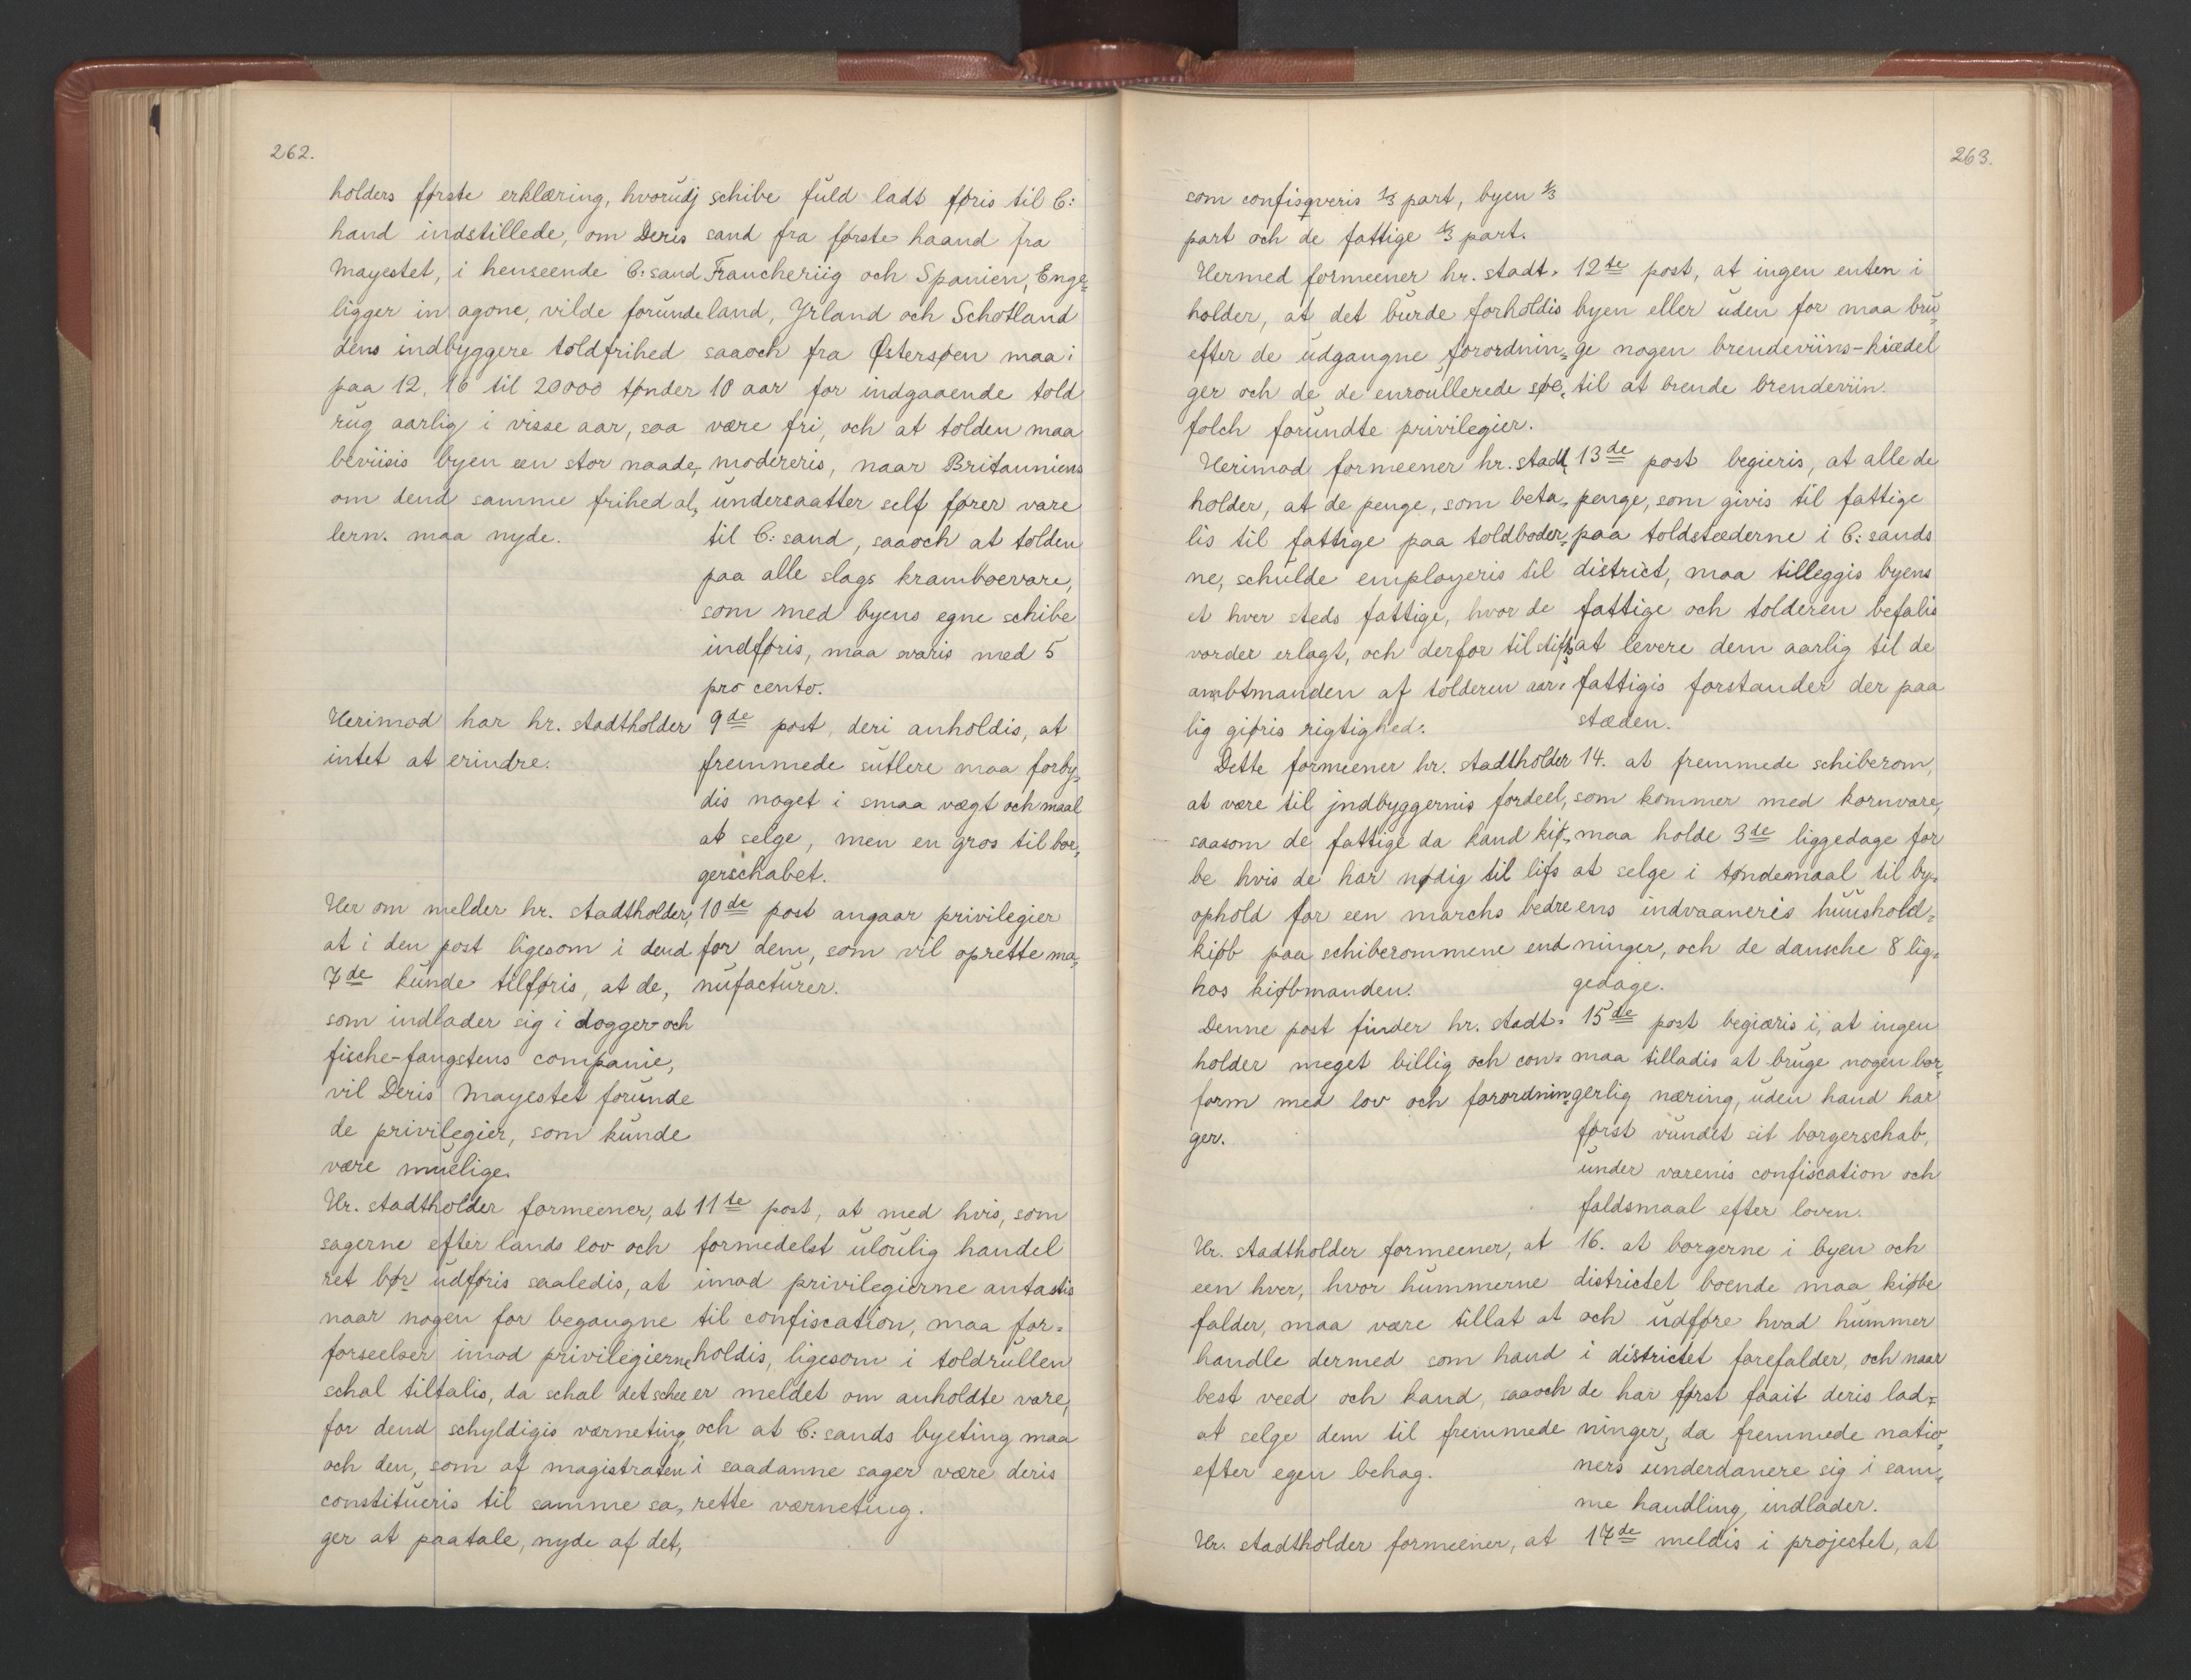 262.
holders første erklæring, hvorudj
hand indstillede, om Deris
Mayestet, i henseende C:sand
ligger in agone, vilde forunde
dens indbyggere toldfrihed
paa 12, 16 til 20000 tønder
rug aarlig i visse aar, saa
beviisis byen een stor naade,
om dend samme frihed al,
lern. maa nyde.
Herimod har hr. stadtholder
intet at erindre.
Her om melder hr. stadtholder,
at i den post ligesom i dend
7de kunde tilføris, at de,
som indlader sig i dogger- och
fische-fangstens companie,
vil Deris Mayestet forunde
de privilegier, som kunde
være muelige.
Hr. stadtholder formeener, at
sagerne efter lands lov och
ret bør udføris saaledis, at
naar nogen for begangne
forseelser imod privilegierne
schal tiltalis, da schal det schee
for dend schyldigis værneting,
och den, som af magistraten
constitueris til samme sa,
ger at paatale, nyde af det,
schibe fuld ladt føris til C:
sand fra første haand fra
Francheriig och Spanien, Enge,
land, Yrland och Schotland
saaoch fra Østersøen maa i
10 aar for indgaaende told
være fri, och at tolden maa
modereris, naar Britanniens
undersaatter self fører vare
til C: sand, saaoch at tolden
paa alle slags kramboevare,
som med byens egne schibe
indføris, maa svaris med 5
pro cento.
9de post, deri anholdis, at
fremmede sutlere maa forby,
dis noget i smaa vægt och maal
at selge, men en gros til boe,
gerschabet.
10de post angaar privilegier
for dem, som vil oprette ma,
nufacturer.
11te post, at med hvis, som
formedelst uloulig handel
imod privilegierne antastis
til confiscation, maa for=
holdis, ligesom i toldrullen
er meldet om anholdte vare,
och at C: sands byeting maa
i saadanne sager være deris
rette værneting.
263.
som confisqveris 1/3 part, byen 1/3
part och de fattige 1/3 part.
Hermed formeener hr. stadt=
holder, at det burde forholdis
efter de udgangne forordnin=
ger och de de enroullerede søe,
folch forundte privilegier.
Herimod formeener hr. stadt,
holder, at de penge, som beta,
lis til fattige paa toldboder,
ne, schulde employeris til
et hver steds fattige, hvor de
vorder erlagt, och derfor til stifts
ambtmanden af tolderen aar=
lig giøris rigtighed.
Dette formeener hr. stadtholder
at være til jndbyggernis fordeel,
saasom de fattige da kand kiø,
be hvis de har nødig til lifs
ophold for een marchs bedre
kiøb paa schiberommene end
hos kiøbmanden.
Denne post finder hr. stadt=
holder meget billig och con=
form med lov och forordnin,
ger.
Hr. stadtholder formeener, at
een hver, hvor hummerne
falder, maa være tillat at
handle dermed som hand
best veed och kand, saaoch
at selge dem til fremmede
efter egen behag.
Hr. stadtholder formeener, at
12te post, at ingen enten i
byen eller uden for maa bru,
ge nogen brendeviins-kiædel
til at brende brendeviin.
13de post begieris, at alle de
penge, som givis til fattige
paa toldstæderne i C: sands
district, maa tilleggis byens
fattige och tolderen befalis
at levere dem aarlig til de
fattigis forstander der paa
stæden.
14. at fremmede schiberom,
som kommer med kornvare,
maa holde 3de liggedage for
at selge i tøndemaal til by,
ens indvaaneris huushold=
ninger, och de dansche 8 lig,
gedage.
15de post begiæris i, at ingen
maa tilladis at bruge nogen bor,
gerlig næring, uden hand har
først vundet sit borgerschab,
under varenis confiscation och
faldsmaal efter loven.
16. at borgerne i byen och
districtet boende maa kiøbe
och udføre hvad hummer
i districtet forefalder, och naar
de har først faait deris lad=
ninger, da fremmede natio,
ners underdanere sig i sam,
me handling indlader.
17de meldis i projectet, at